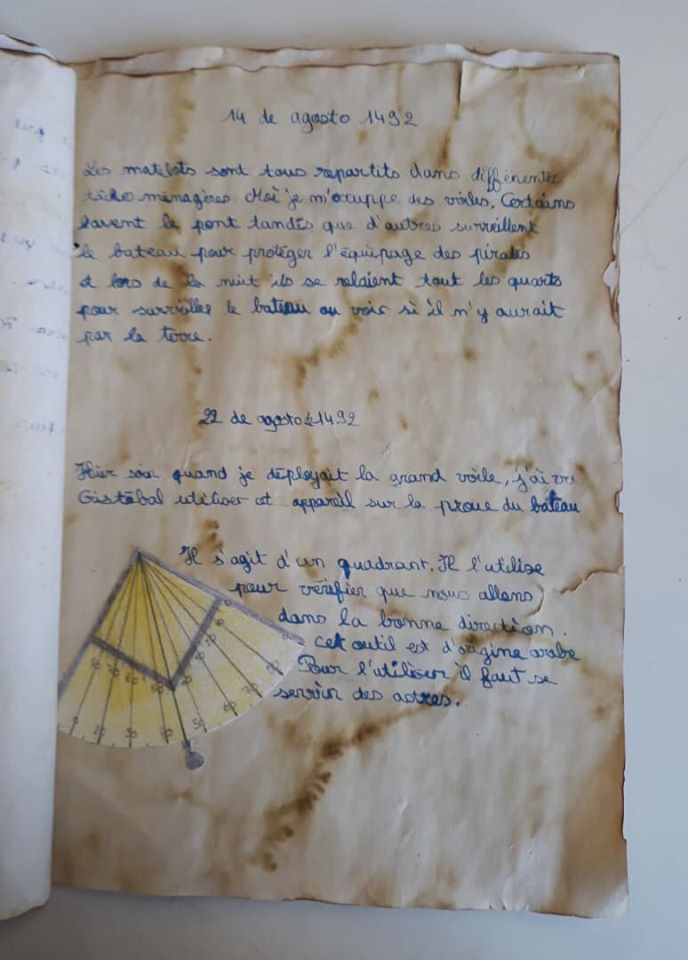 14 de agosto 1492
Les matilots sont tous repartits dans différentes
tâche ménagères. Moi je m'ocuppe des voiles. Certains
lavent le pont tandis que d'autres surveillent
le bateau pour protéger l'équipage des pirates
et lors de la nuit ils se relaient tout les quarts
pour surveiller le bateau ou voir si il n'y aurait
par la terre.
22 de agosto 1492
Hier soir quand je déployait la grand voile, j'ai vu
Cistobal utiliser cet appareil sur la proue du bateau
Il s'agit d'un quadrant. Il l'utilise
pour vérifier que nous allons
dans la bonne direction.
cet outil est d'origine arabe
Pour l'utiliser il faut se
servir des astres.